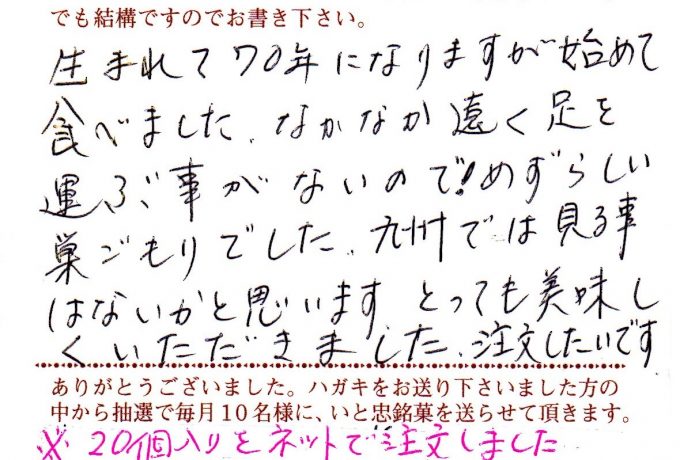 でも結構ですのでお書き下さい。
生まれて70年になりますが始めて
食べました、なかなか遠く足を
運ぶ事がないので!めずらしい
巣ごもりでした、九州では見る事
はないかと思います とっても美味し
くいただきました、注文したいです
ありがとうございました。ハガキをお送り下さいました方の
中から抽選で毎月10名様に、いと忠銘菓を送らせて頂きます。
※ 20個入りをネットで注文しました